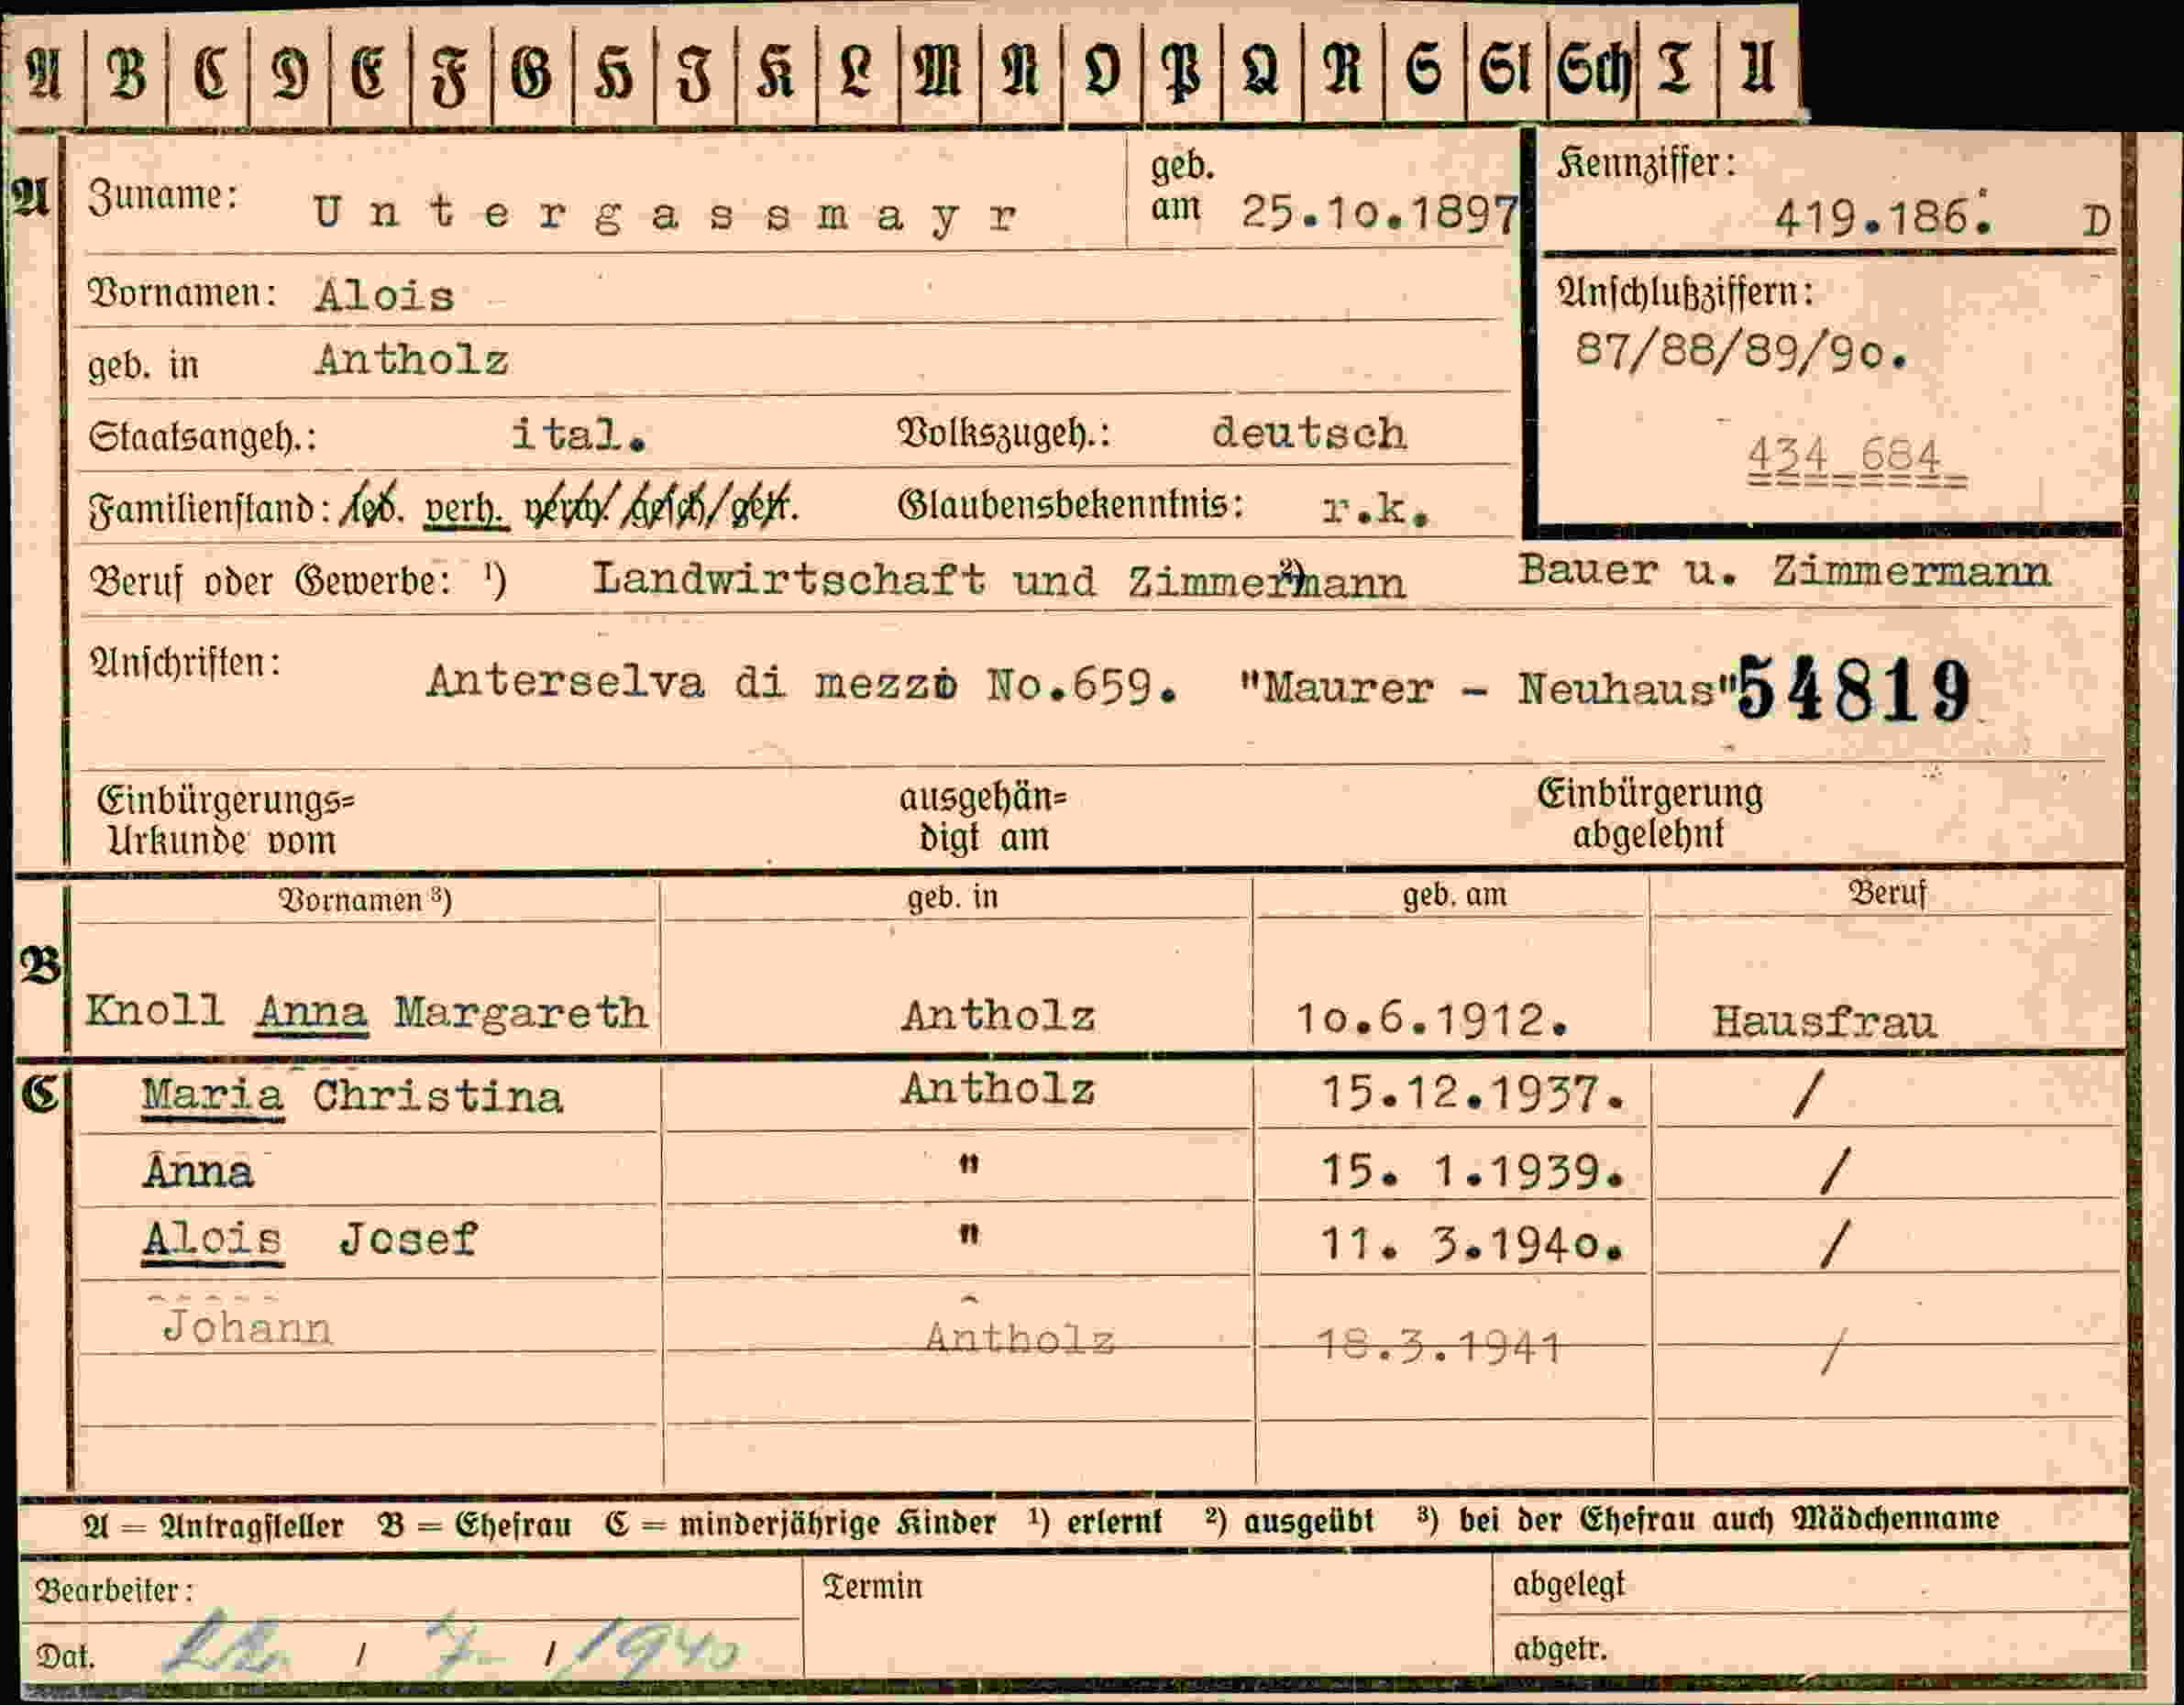 A B C D E F G H J K L M N O P Q R S St Sch T U
A Zuname: Untergassmayr geb. am 25.10.1897 Kennziffer: 419.186. D
Vornamen: Alois
Anschlußziffern:
geb. in Antholz 87/88/89/90.
Staatsangeh.: ital. Volkszugeh.: deutsch
434 684
Familienstand: led. verh. verw./gesch/getr. Glaubensbekenntnis: r.k.
Beruf oder Gewerbe: ¹) Landwirtschaft und Zimmermann ²) Bauer u. Zimmermann
Anschriften: Anterselva di mezzo No.659. "Maurer - Neuhaus" 54819
Einbürgerungs= ausgehän= Einbürgerung
Urkunde vom digt am abgelehnt
Vornamen ³) geb. in geb. am Beruf
B
Knoll Anna Margareth Antholz 10.6.1912. Hausfrau
C Maria Christina Antholz 15.12.1937. /
Anna " 15. 1.1939. /
Alois Josef " 11. 3.1940. /
Johann Antholz 18.3.1941 /
A = Antragsteller B = Ehefrau C = minderjährige Kinder ¹) erlernt ²) ausgeübt ³) bei der Ehefrau auch Mädchenname
Bearbeiter: Termin abgelegt
Dat. / 7. / 1940 abgetr.